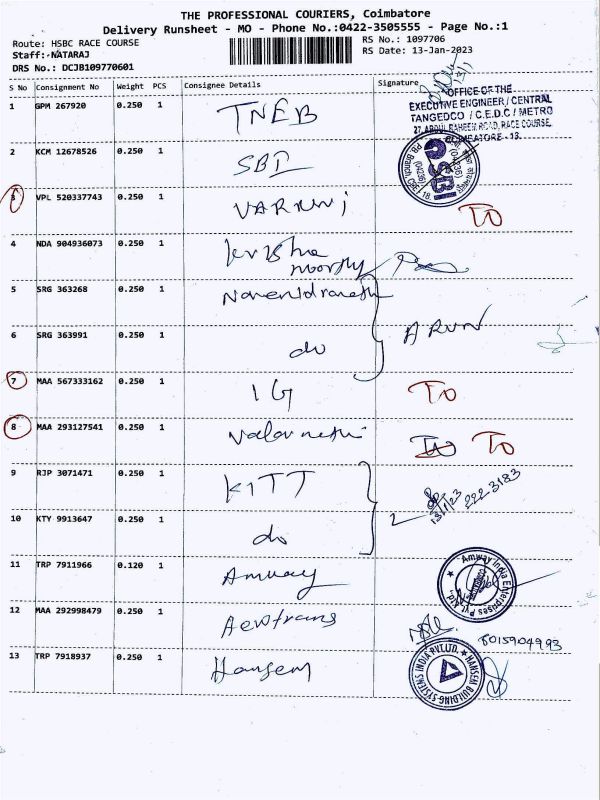 THE PROFESSIONAL COURIERS, Coimbatore
Delivery Runsheet - MO - Phone No.:0422-3505555 - Page No.:1
Route: HSBC RACE COURSE RS No.: 1097706
Staff:-NATARAJ RS Date: 13-Jan-2023
DRS No.: DCJB109770601
S No Consignment No Weight PCS Consignee Details Signature
OFFICE OF THE
EXECUTIVE ENGINEER / CENTRAL
TANGEDCO / C.E.D.C / METRO
27, ABDUL RAHEEM ROAD, RACE COURSE,
COIMBATORE - 18.
1 GPM 267920 0.250 1 TNEB
2 KCM 12678526 0.250 1 SBI
PB Branch, CBE-18
3 VPL 520337743 0.250 1 VARUNI TO
4 NDA 904936073 0.250 1 Krishna
moorthy
5 SRG 363268 0.250 1
6 SRG 363991 0.250 1 do ARUN
7 MAA 567333162 0.250 1 IG TO
8 MAA 293127541 0.250 1 TO TO
9 RJP 3071471 0.250 1 KITT
13/1/23 2223183
10 KTY 9913647 0.250 1 do
11 TRP 7911966 0.120 1 Amway
Amway India Enterprises Pvt. Ltd.
12 MAA 292998479 0.250 1 Aerotrans
8015904993
13 TRP 7918937 0.250 1 Hansem
HANSEM BUILDING SYSTEMS INDIA PVT.LTD.